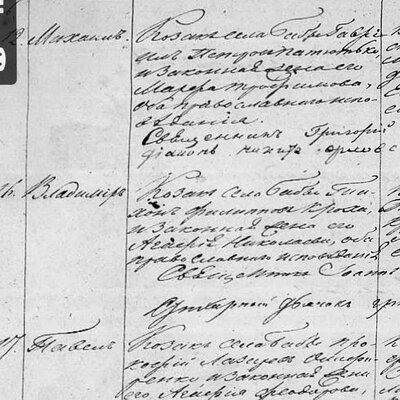 12. Михаилъ.
Козакъ села Бабы Гаври-
илъ Петров
и законная жена его
Марфа Трофимова,
оба православнаго испо-
веданія.
Священникъ Григорій
діаконъ Никита Орлов
16. Владиміръ
Козакъ села Бабы Ти-
хонъ Филиппов Кроха,
и законная жена его
Агафія Николаева, оба
православнаго исповеданія.
Священникъ Іоанн
17. Павелъ
Козакъ села Бабы Про-
кофій Лазарев
и законная жена
его Агафія Феодорова,